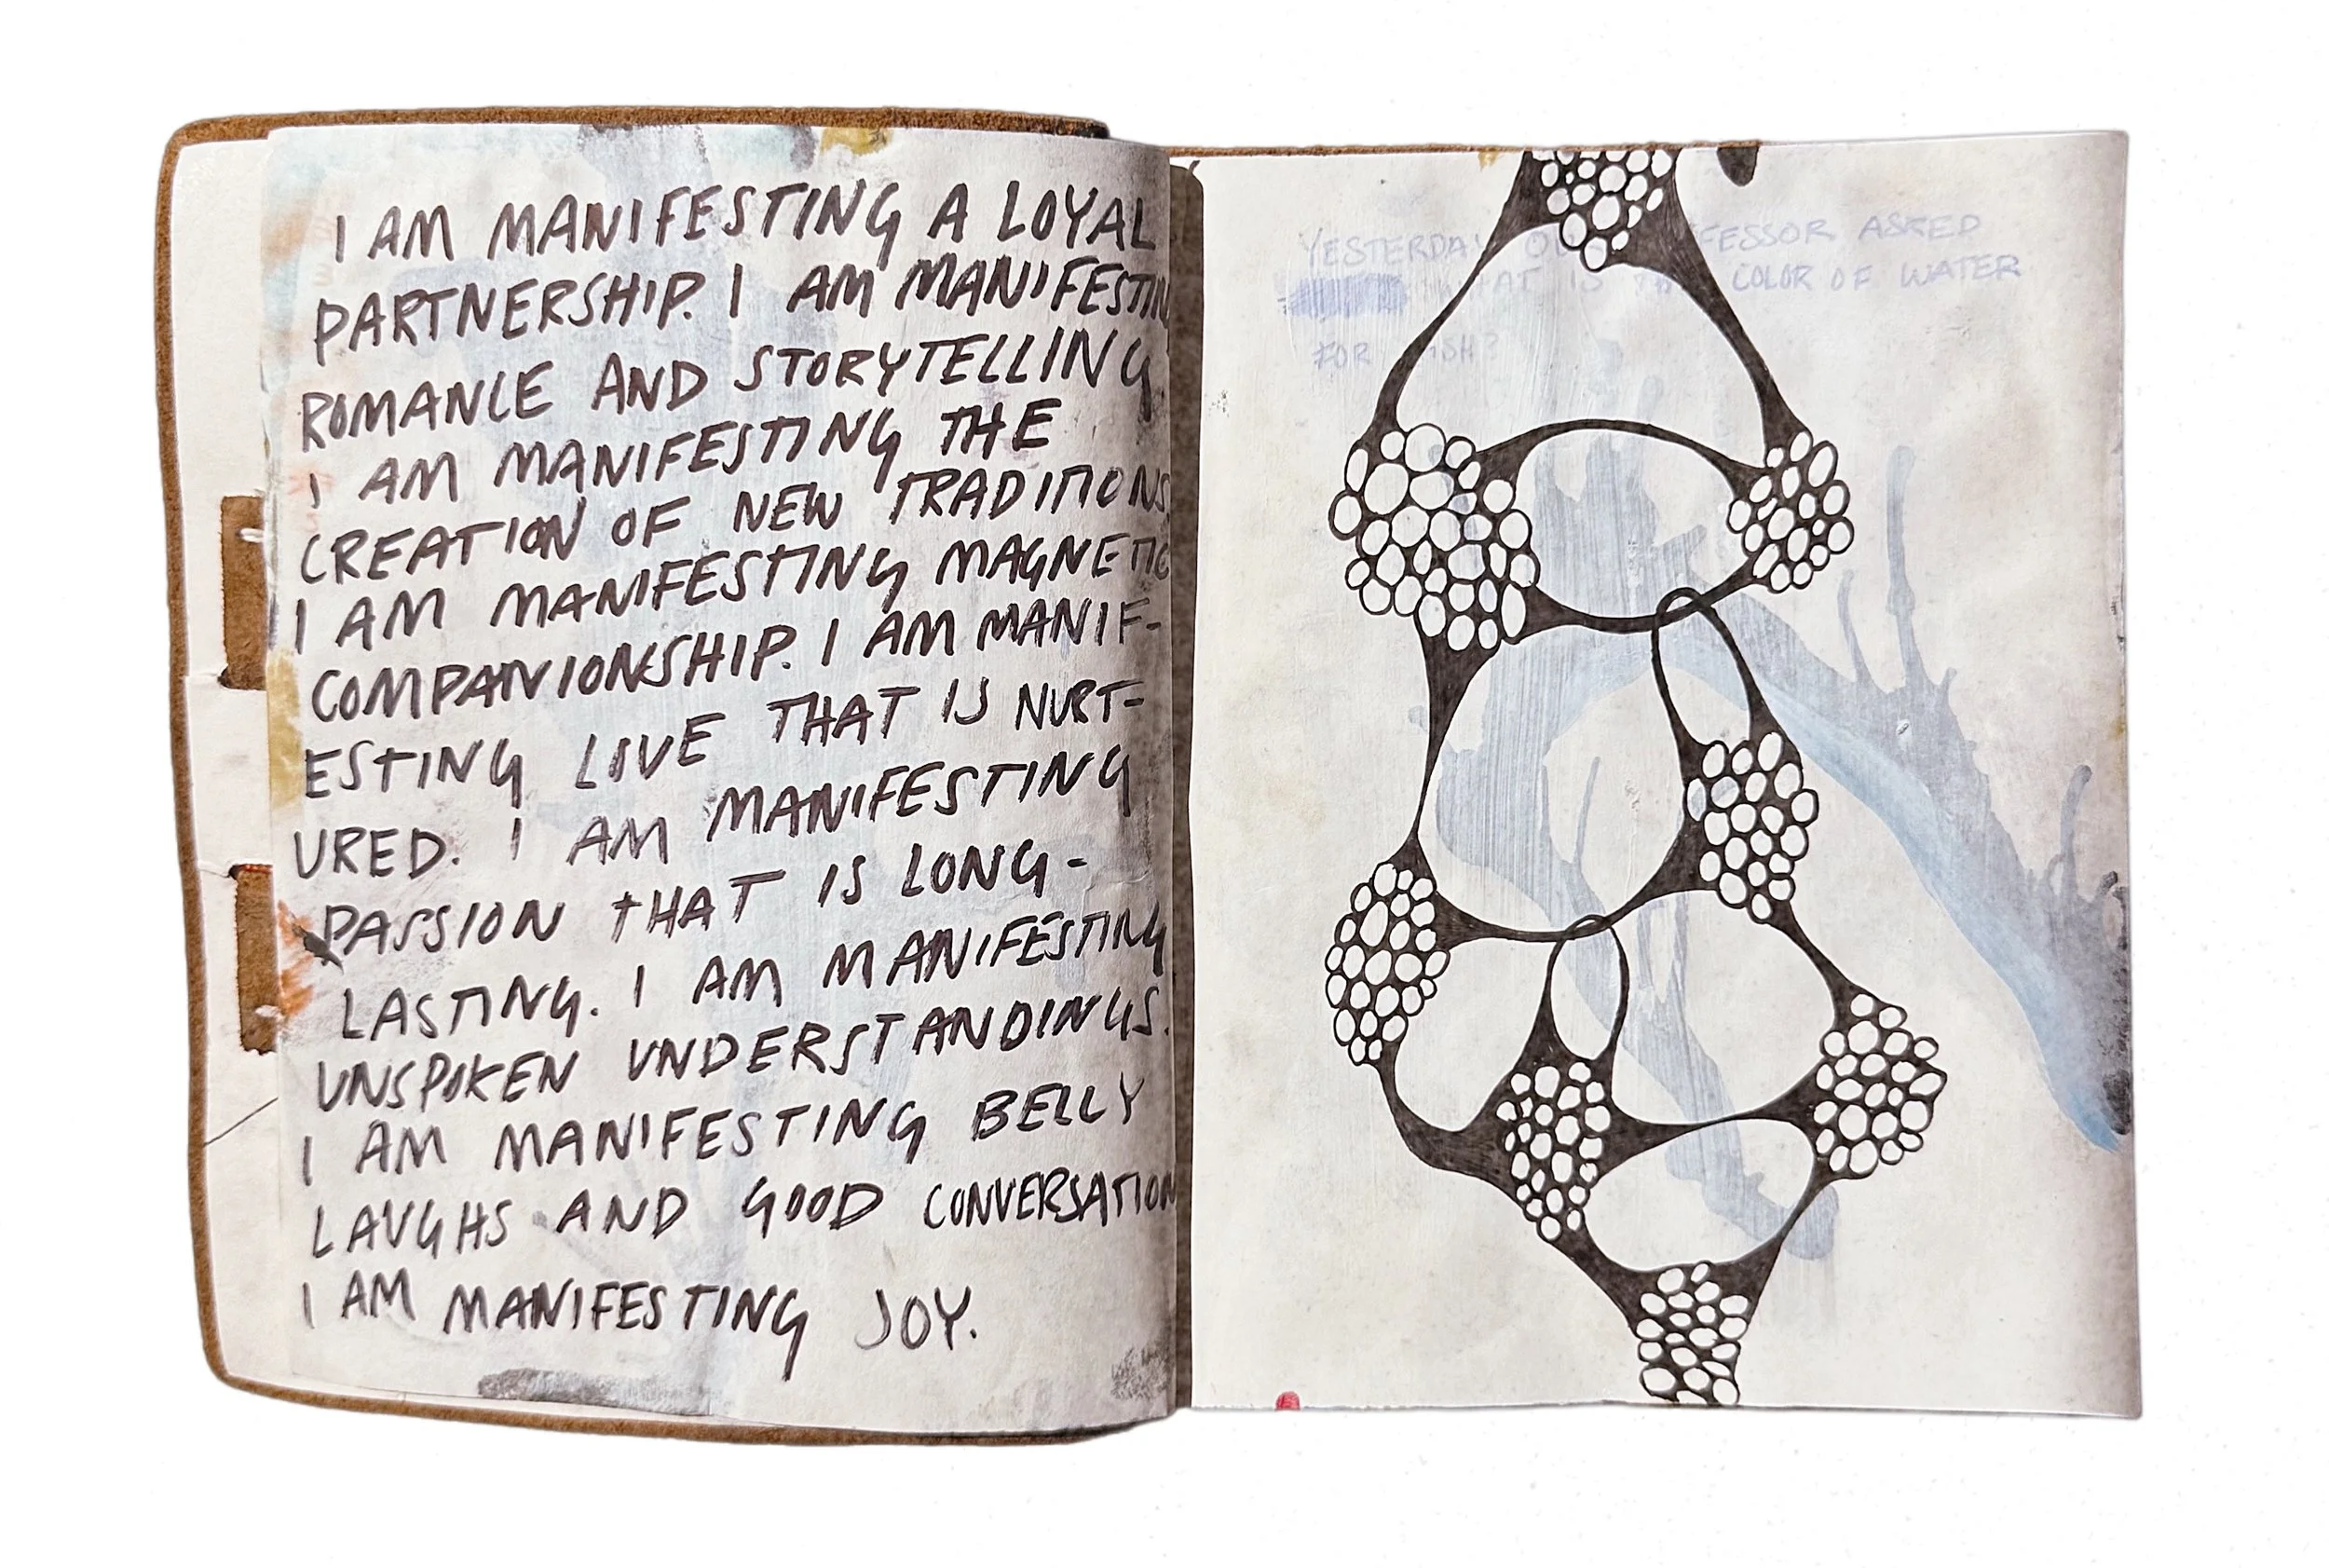 I AM MANIFESTING A LOYAL
PARTNERSHIP. I AM MANIFESTIN
ROMANCE AND STORYTELLING.
I AM MANIFESTING THE
CREATION OF NEW TRADITIONS
I AM MANIFESTING MAGNETIC
COMPANIONSHIP. I AM MANIF-
ESTING LOVE THAT IS NURT-
URED. I AM MANIFESTING
PASSION THAT IS LONG-
LASTING. I AM MANIFESTING
UNSPOKEN UNDERSTANDINGS.
I AM MANIFESTING BELLY
LAUGHS AND GOOD CONVERSATION
I AM MANIFESTING JOY.
YESTERDAY ASKED
IS COLOR OF WATER
FOR